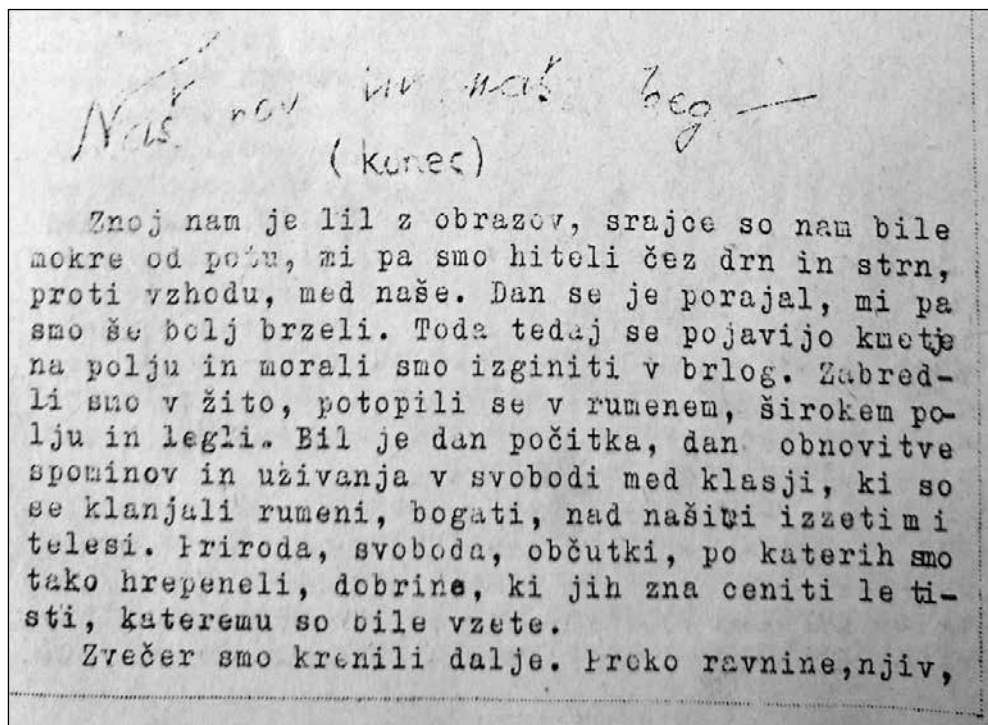 Naš nov naš beg —
(konec)
Znoj nam je lil z obrazov, srajce so nam bile
mokre od potu, mi pa smo hiteli čez drn in strn,
proti vzhodu, med naše. Dan se je porajal, mi pa
smo še bolj brzeli. Toda tedaj se pojavijo kmetje
na polju in morali smo izginiti v brlog. Zabred-
li smo v žito, potopili se v rumenem, širokem po-
lju in legli. Bil je dan počitka, dan obnovitve
spominov in uživanja v svobodi med klasji, ki so
se klanjali rumeni, bogati, nad našimi izzetimi
telesi. Priroda, svoboda, občutki, po katerih smo
tako hrepeneli, dobrine, ki jih zna ceniti le ti-
sti, kateremu so bile vzete.
Zvečer smo krenili dalje. Preko ravnine,njiv,